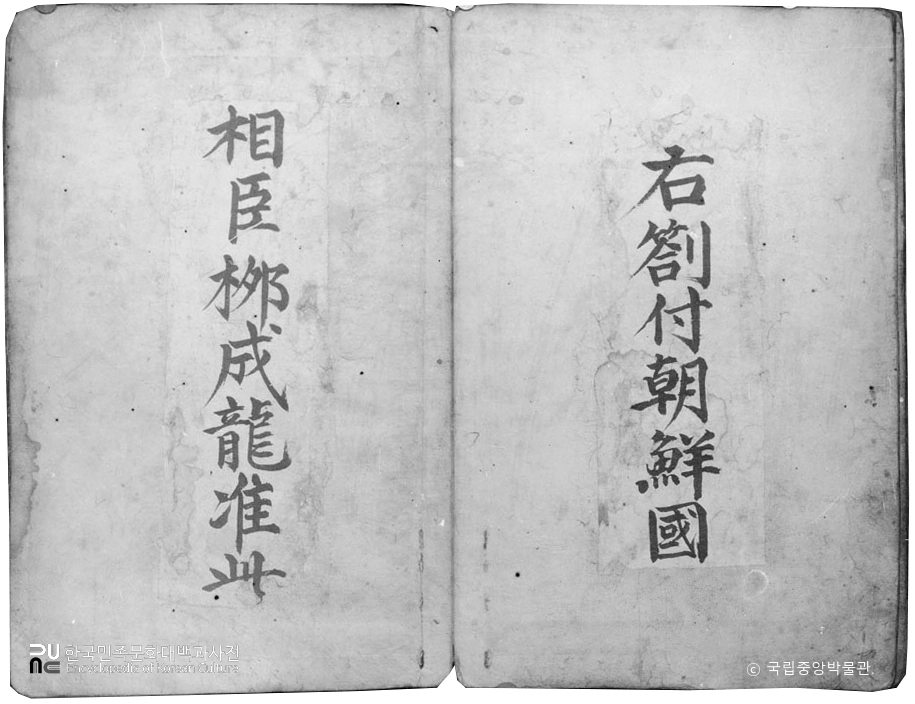 右劄付朝鮮國
相臣桞成龍准此
한국민족문화대백과사전
Encyclopedia of Korean Culture
© 국립중앙박물관.